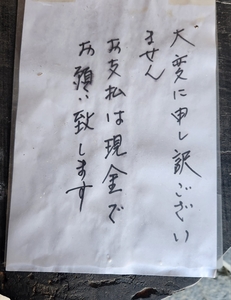 大変に申し訳ござい
ません
お支払は現金で
お願い致します